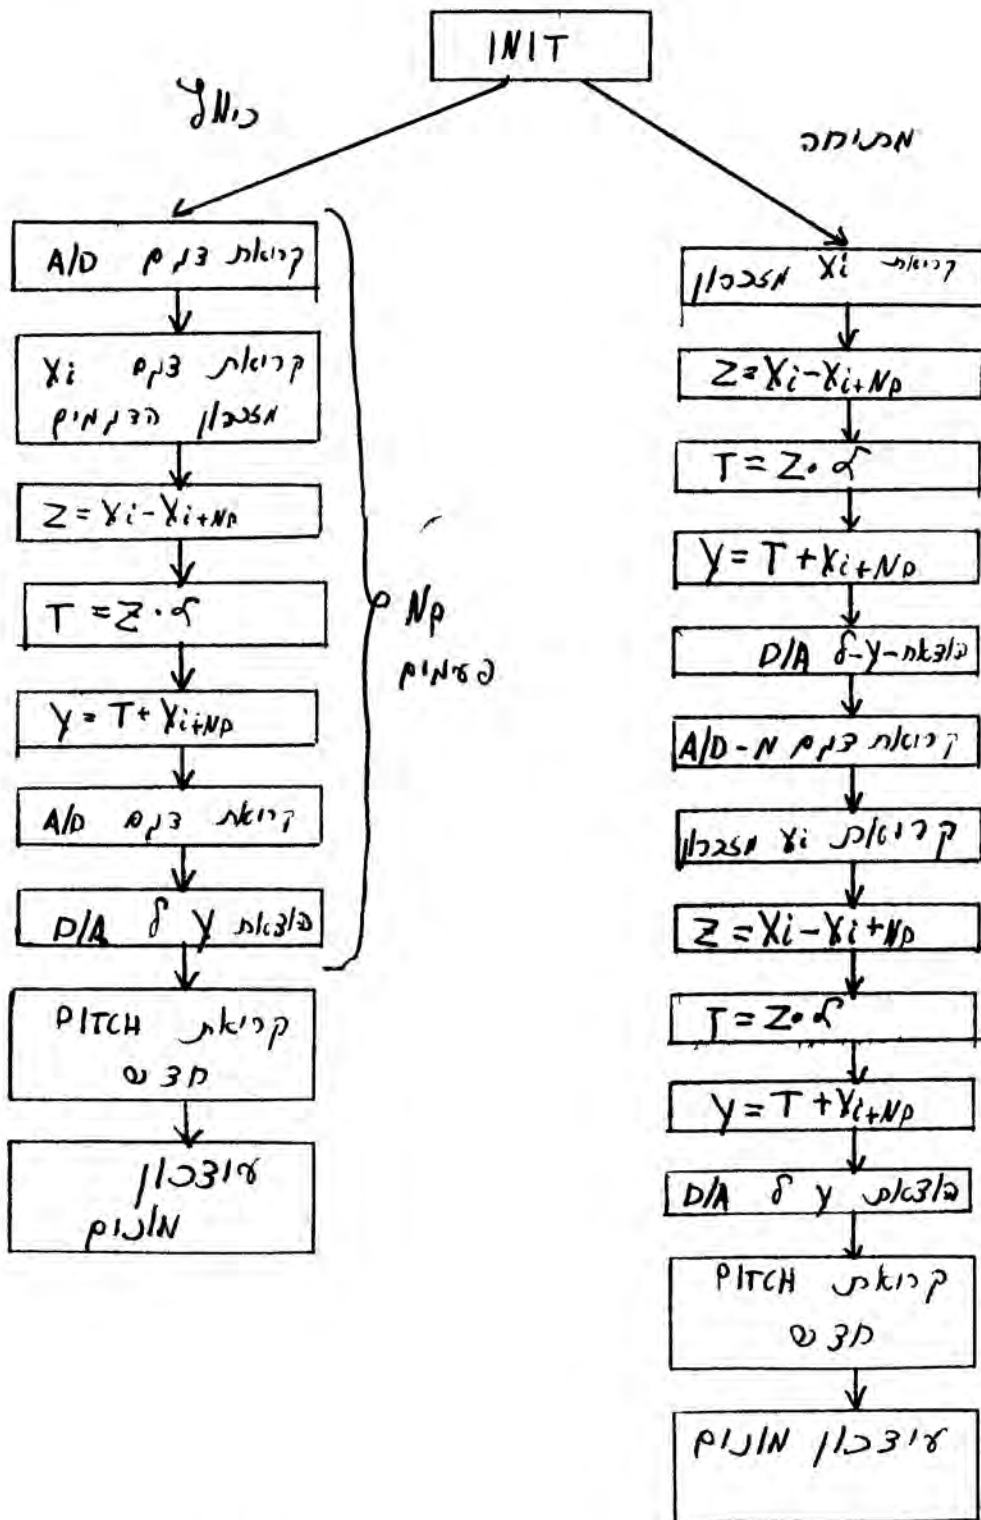 INIT
כיווץ
קריאת דגם A/D
קריאת דגם Xi
מזכרון הדגמים
Z = Xi - Xi+Np
T = Z · α
Y = T + Xi+Np
קריאת דגם A/D
הוצאת Y ל D/A
קריאת PITCH
חדש
עידכון
מונים
Np
פעמים
מתיחה
קריאת Xi מזכרון
Z = Xi - Xi+Np
T = Z · α
Y = T + Xi+Np
הוצאת-Y-ל D/A
קריאת דגם מ-A/D
קריאת Xi מזכרון
Z = Xi - Xi+Np
T = Z · α
Y = T + Xi+Np
הוצאת Y ל D/A
קריאת PITCH
חדש
עידכון מונים